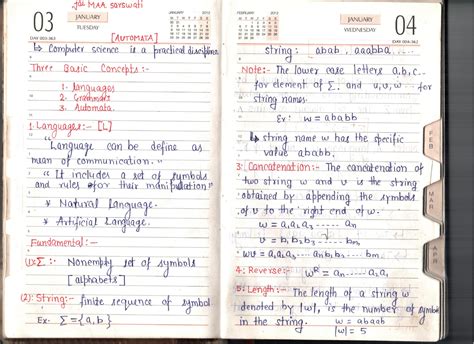 Jai MAA Sarswati
03
JANUARY
TUESDAY
[AUTOMATA]
↳ Computer science is a practical discipline
Three Basic Concepts:-
1. Languages
2. Grammars
3. Automata.
1. Languages:- [L]
"Language can be define as
mean of communication."
"It includes a set of symbols
and rules for their manipulation"
* Natural Language.
* Artificial Language.
Fundamental:-
(1) Σ :- Nonempty set of symbols
[alphabets]
(2) String:- finite sequence of symbol
Ex. Σ = {a, b}
FEBRUARY 2012
JANUARY
WEDNESDAY
04
string: abab, aaabba...
Note:- The lower case letters a,b,c..
for element of Σ; and u,v,w... for
string names.
Ex: w = ababb
↳ string name w has the specific
value ababb.
3. Concatenation:- The concatenation of
two string w and v is the string
obtained by appending the symbols
of v to the right end of w.
w = a₁a₂a₃ ... an
v = b₁b₂b₃ ... bn
wv = a₁a₂a₃ ... an b₁b₂b₃ ... bn
4. Reverse:- wᴿ = an ... a₂a₁
5. Length:- The length of a string w
denoted by |w|, is the number of symbols
in the string. w = abaab
|w| = 5
FEB
MAR
APR